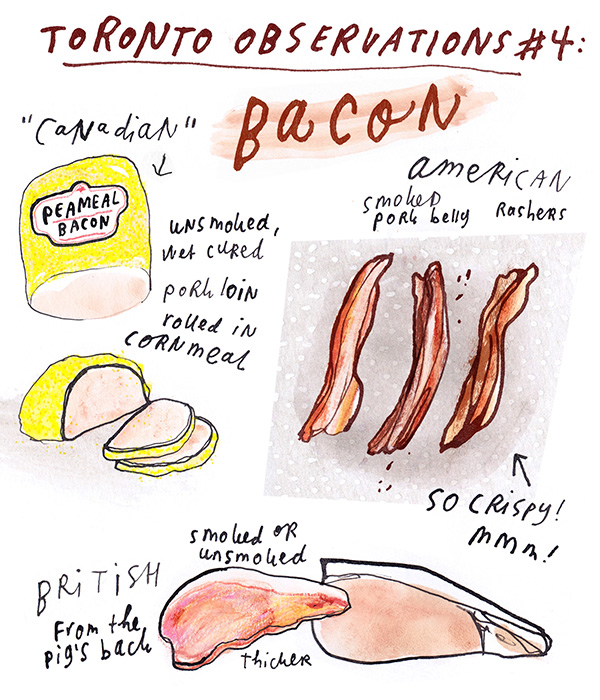 TORONTO OBSERVATIONS #4:
BACON
"CANADIAN"
PEAMEAL
BACON
UNSMOKED,
WET CURED
PORK LOIN
ROLLED IN
CORNMEAL
AMERICAN
SMOKED
PORK BELLY RASHERS
SO CRISPY!
MMM!
BRITISH
FROM THE
PIG'S BACK
SMOKED OR
UNSMOKED
THICKER